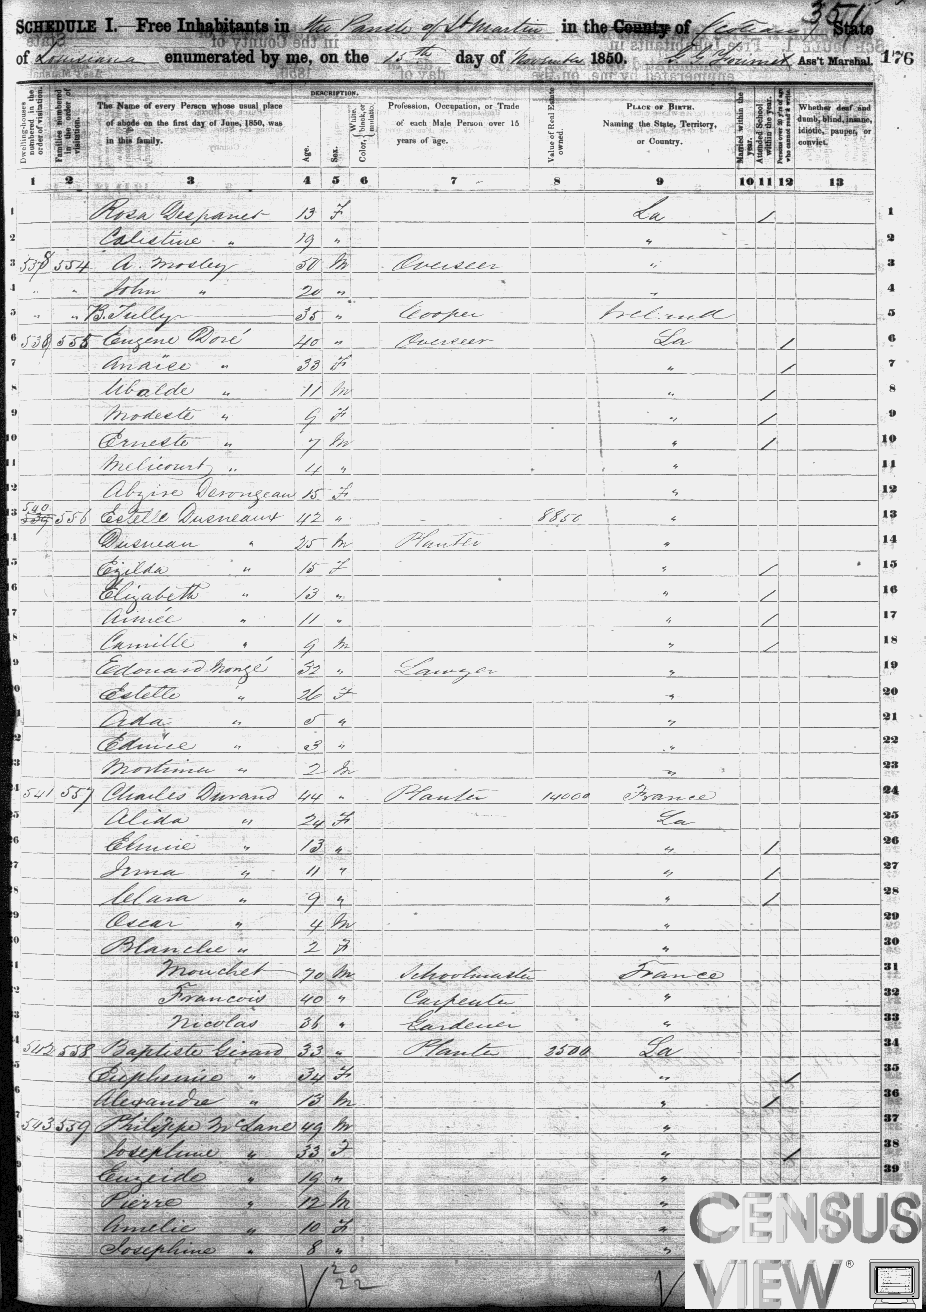 351
SCHEDULE I.—Free Inhabitants in the Parish of St Martin in the County of State
of Louisiana enumerated by me, on the 15th day of November 1850. Ass't Marshal. 176
Dwelling-houses numbered in the order of visitation.
Families numbered in the order of visitation.
The Name of every Person whose usual place of abode on the first day of June, 1850, was in this family.
DESCRIPTION.
Age.
Sex.
Color, White, black, or mulatto.
Profession, Occupation, or Trade of each Male Person over 15 years of age.
Value of Real Estate owned.
PLACE OF BIRTH. Naming the State, Territory, or Country.
Married within the year.
Attended School within the year.
Persons over 20 y'rs of age who cannot read & write.
Whether deaf and dumb, blind, insane, idiotic, pauper, or convict.
1 2 3 4 5 6 7 8 9 10 11 12 13
1 Rosa Despanet 13 F La / 1
2 Calistine " 19 " " 2
3 554 A. Mosley 50 M Overseer " 3
4 " " John " 20 " " 4
" " B. Tully 35 " Cooper Ireland 5
6 538 555 Eugene Doré 40 " Overseer La / 6
7 Anaïse " 33 F " / 7
8 Ubalde " 11 M " / 8
9 Modeste " 9 F " / 9
10 Erneste " 7 M " / 10
11 Melicourt " 4 " " 11
12 Abzire Derongeau 15 F " 12
13 540 539 556 Estelle Dusneaux 42 " 8850 " 13
14 Dusneau " 25 M Planter " 14
15 Ezilda " 15 F " / 15
16 Elizabeth " 13 " " / 16
17 Aimée " 11 " " / 17
18 Camille " 9 M " / 18
19 Edouard Mongé 32 " Lawyer " 19
20 Estelle " 26 F " 20
21 Arda " 5 " " 21
22 Edmée " 3 " " 22
23 Mortimer " 2 M " 23
24 541 557 Charles Durand 44 " Planter 14000 France 24
25 Alida " 24 F La 25
26 Elmire " 13 " " / 26
27 Irma " 11 " " / 27
28 Clara " 9 " " / 28
29 Oscar " 4 M " 29
30 Blanche " 2 F " 30
31 Mouchet 70 M Schoolmaster France 31
32 Francois 40 " Carpenter " 32
33 Nicolas 36 " Gardener " 33
34 542 558 Baptiste Girard 33 " Planter 2500 La 34
35 Euphemie " 34 F " / 35
36 Alexandre " 13 M " / 36
37 543 559 Philippe McLane 49 M " 37
38 Josephine " 33 F " / 38
39 Euzeide " 19 " " 39
Pierre " 12 M "
Amelie " 10 F "
Josephine " 8 " "
20
22
CENSUS
VIEW®